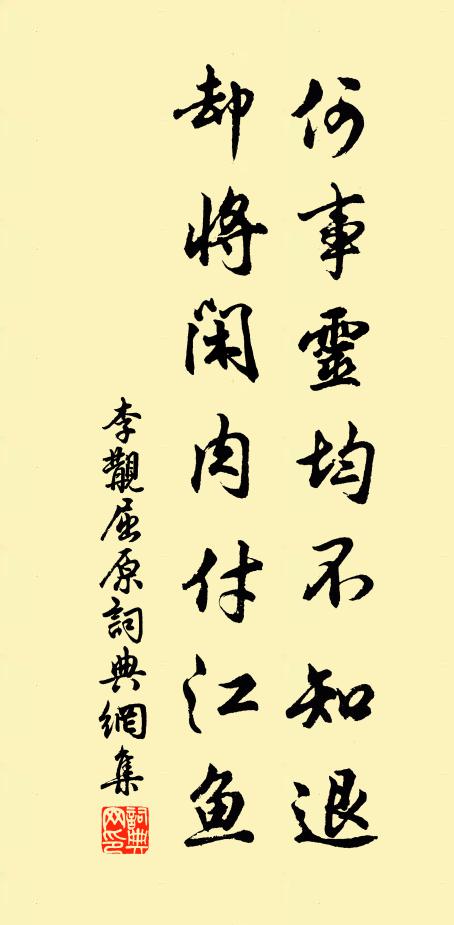 何事靈均不知退
却將閑肉付江魚
李覯屈原詞典網集
詞典網印